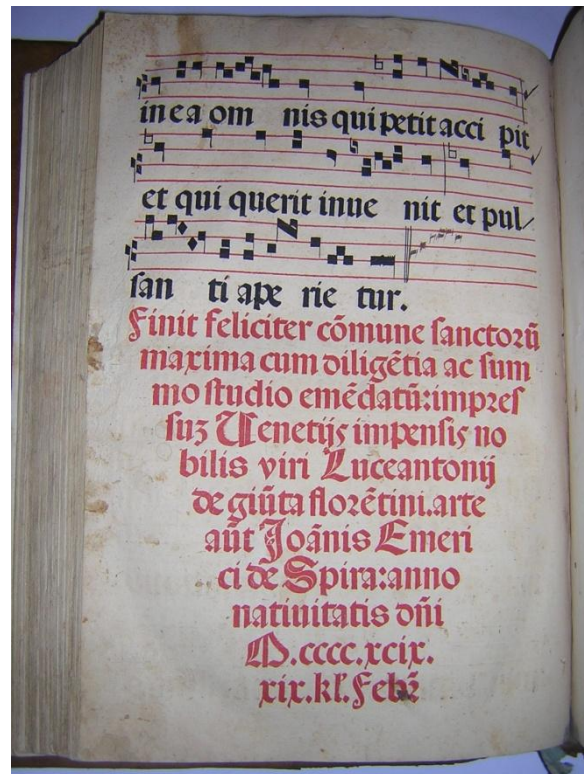 in e a om nis qui petit acci pit
et qui querit inue nit et pul
san ti ape rie tur.
Finit feliciter cõmune sanctorũ
maxima cum diligẽtia ac sum
mo studio emẽdatũ:impres
suꝫ Uenetijs impensis no
bilis viri Luceantonij
de giũta florẽtini.arte
aũt Joãnis Emeri
ci de Spira:anno
natiuitatis dñi
M.cccc.xcix.
xix.kl.